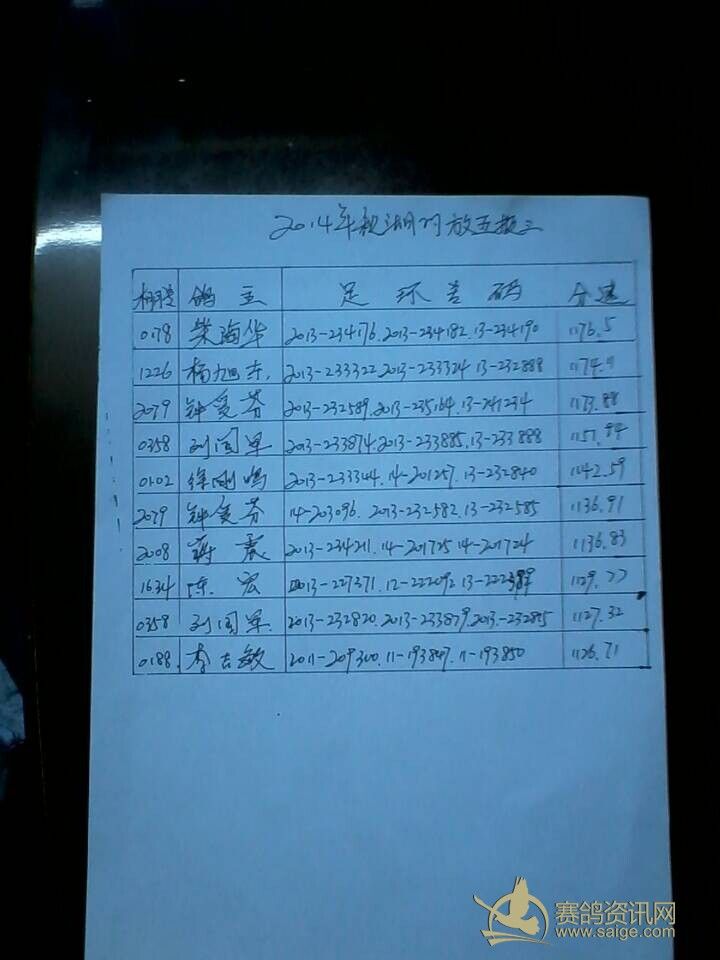 2014年秋 放五报三
棚号 鸽主 足环号码 分速
0178 柴海华 2013-234176. 2013-234182. 13-234190 1176.5
1226 杨旭东. 2013-233322 2013-233324 13-232888
2079 钟爱芬 2013-232589. 2013-235164. 13-241234 1173.88
0358 刘国军 2013-233874. 2013-233885. 13-233888 1157.94
0102 徐刚鸣 2013-233344. 14-201257. 13-232840 1142.59
2079 钟爱芬 14-203096. 2013-232582. 13-232585 1136.91
2008 蒋震 2013-234211. 14-201725 14-201724 1136.83
1634 陈宏 2013-227371. 12-222092. 1129.77
0358 刘国军. 2013-232820. 2013-233879. 1127.32
0188. 李吉敏 2011-209300. 11-193847. 11-193850 1126.71
赛鸽资讯网
www.saige.com